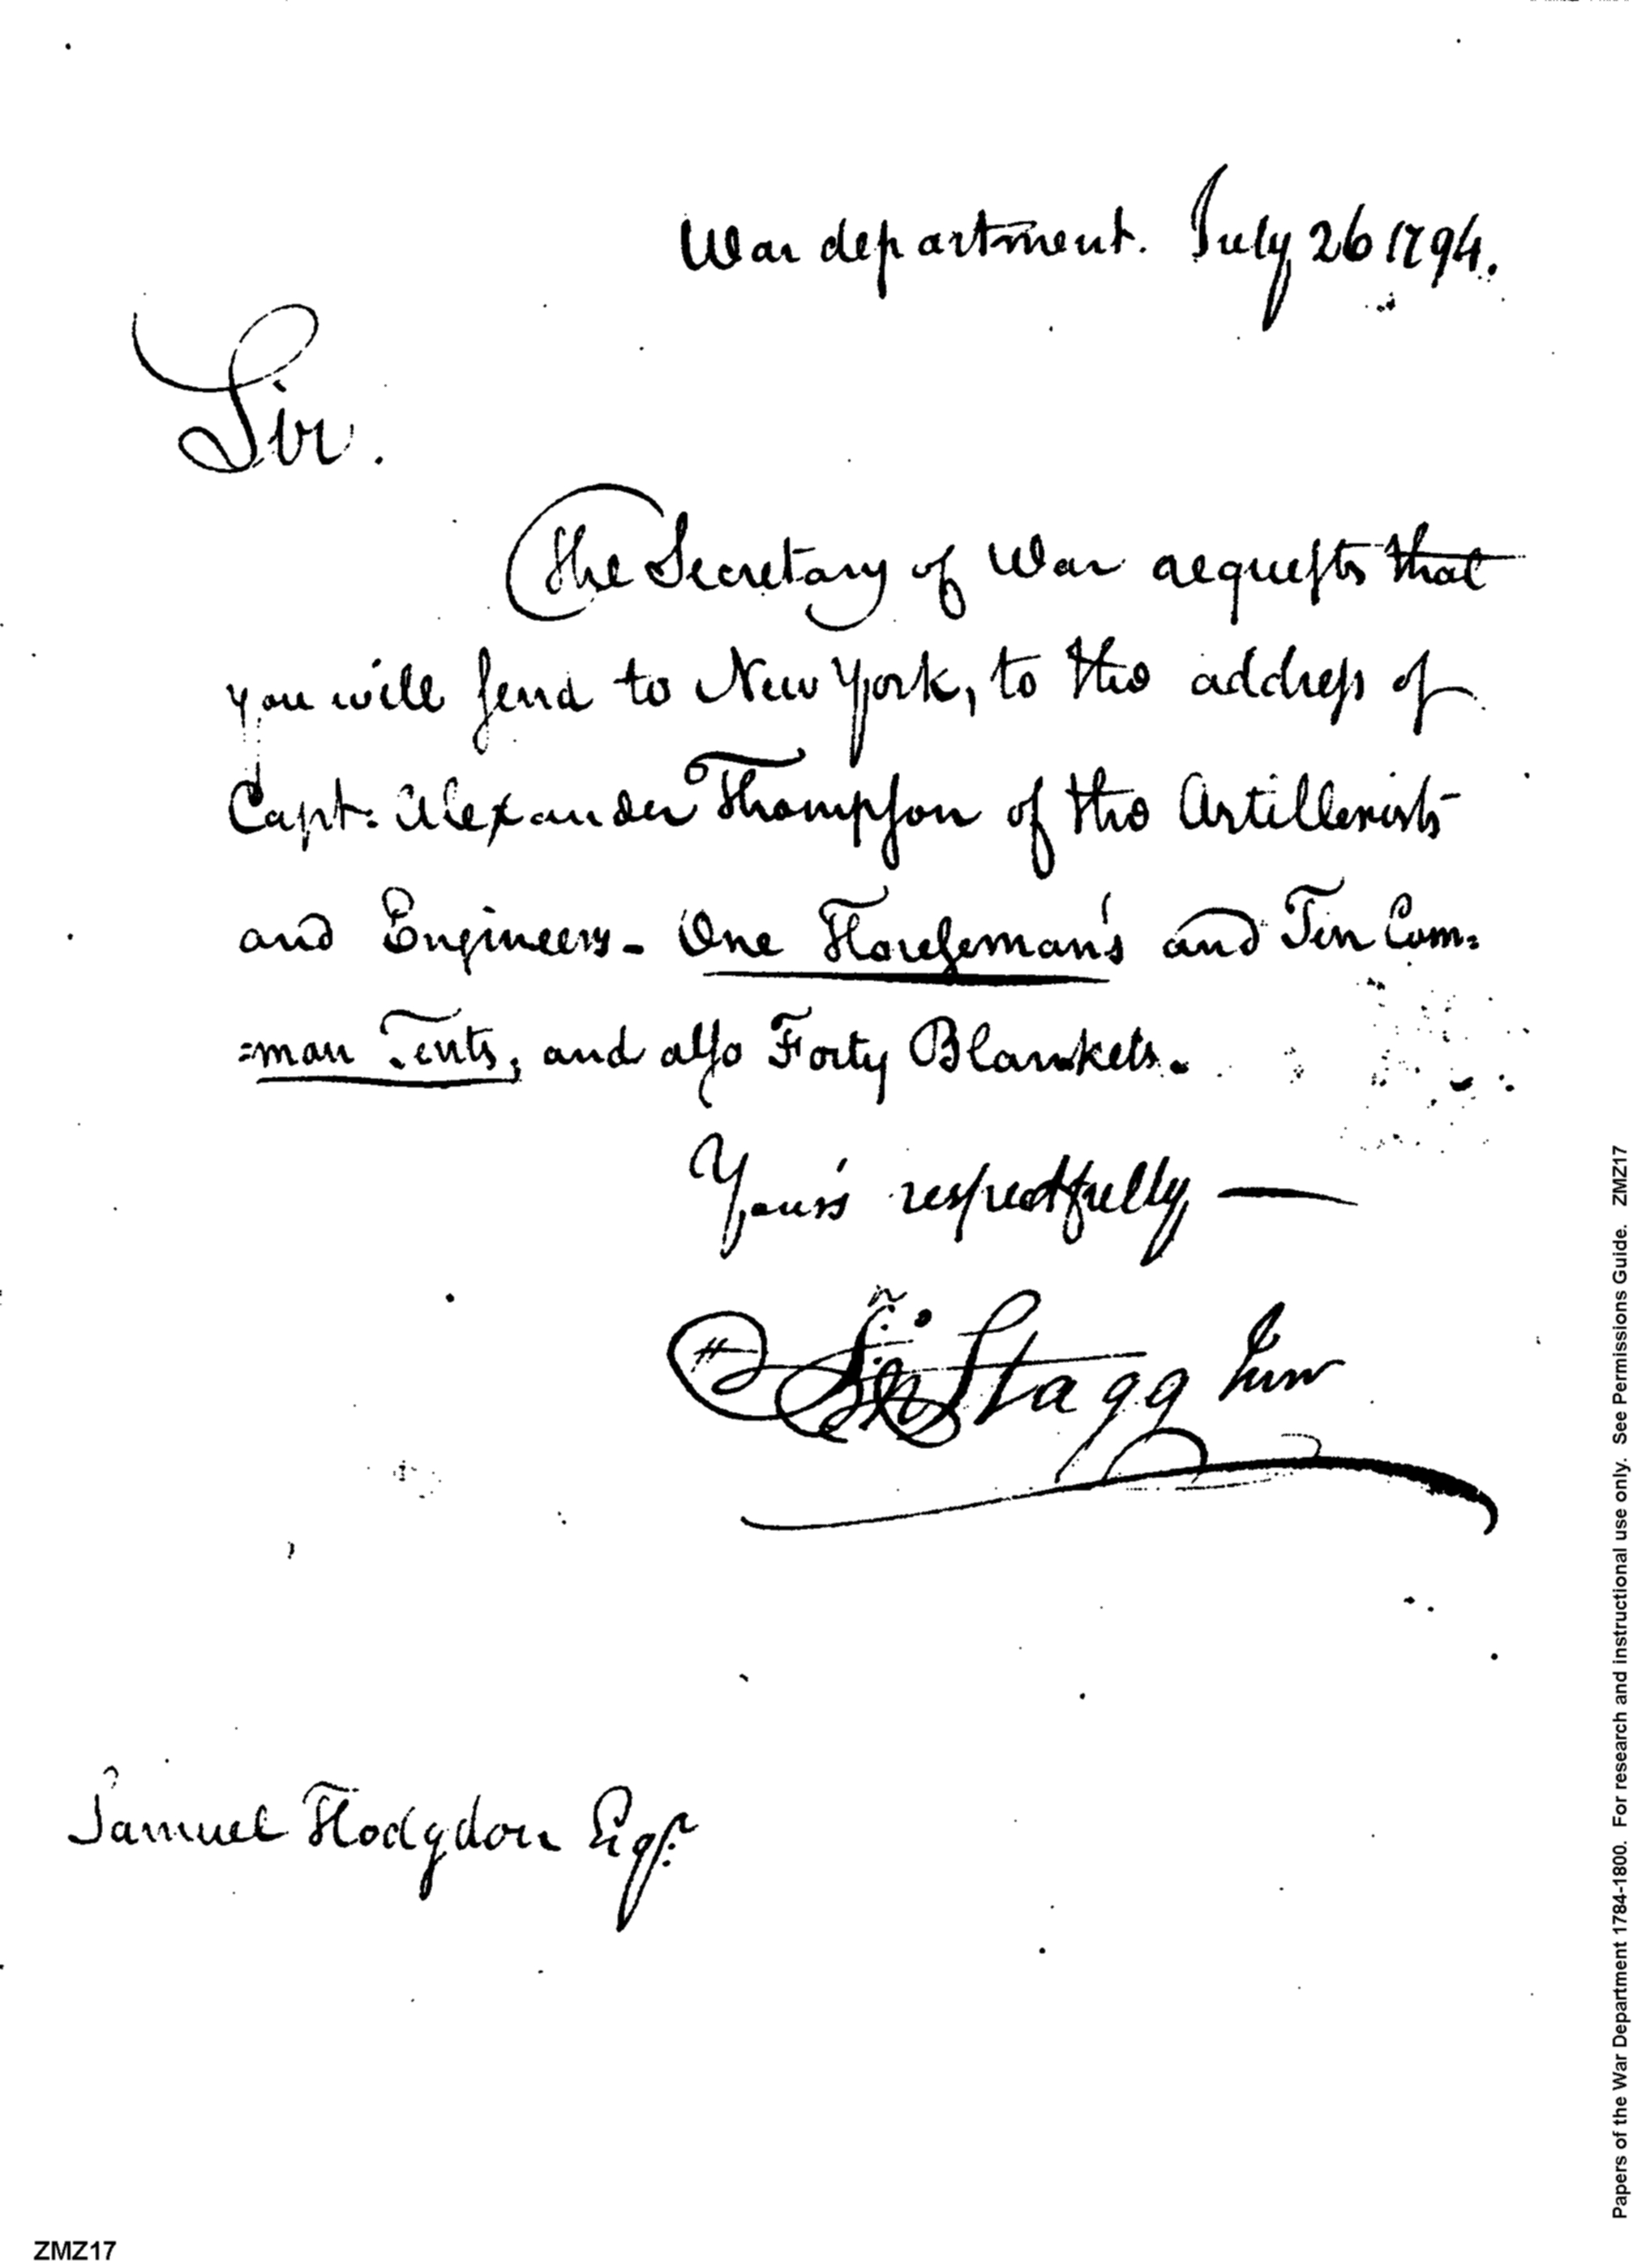 War department. July 26 1794.
Sir.
The Secretary of War requests that
you will send to New York, to the address of
Capt. Alexander Thompson of the Artillerists
and Engineers - One Horseman's and Ten Com=
=mon Tents, and also Forty Blankets.
Your's respectfully —
Jno Stagg Junr
Samuel Hodgdon Esqr.
Papers of the War Department 1784-1800. For research and instructional use only. See Permissions Guide. ZMZ17
ZMZ17